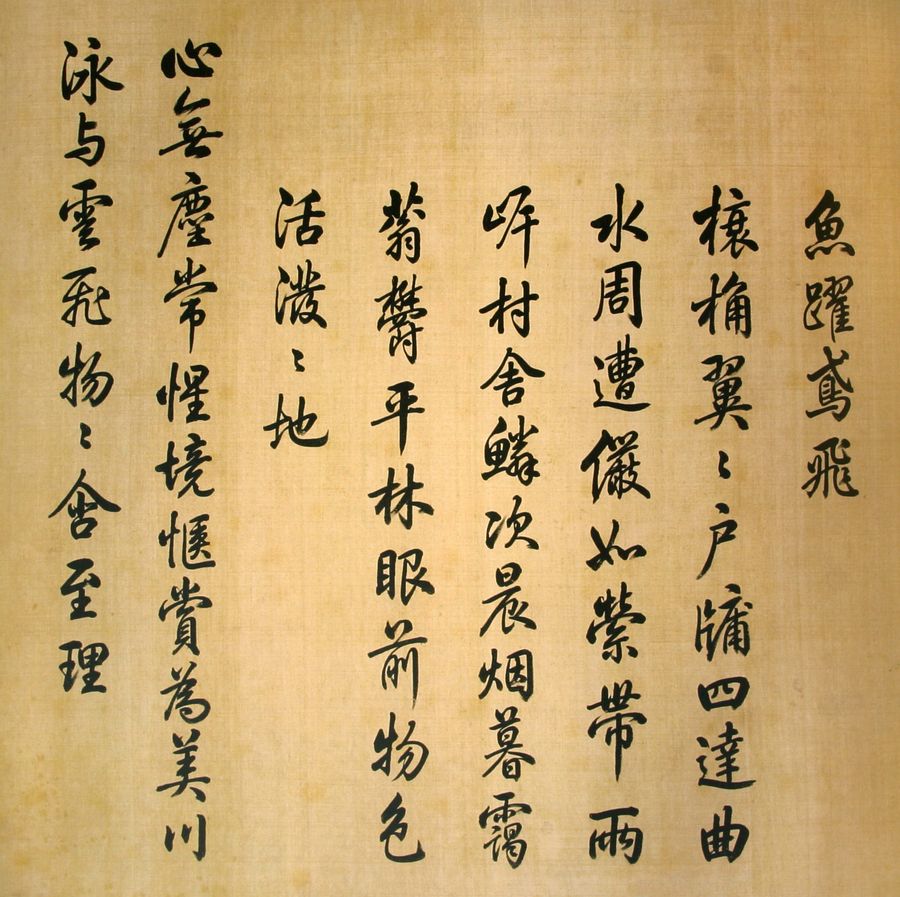 魚躍鳶飛
榱桷翼〻户牖四達曲
水周遭儼如縈帶兩
岍村舍鱗次晨烟暮靄
蓊欝平林眼前物色
活潑〻地
心無塵常惺境愜賞為美川
泳与雲飛物〻含至理